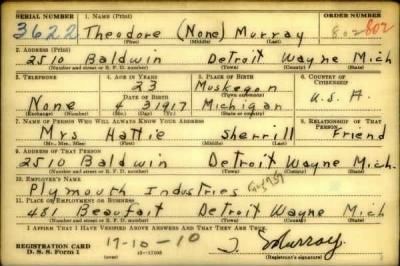 SERIAL NUMBER 1. NAME (Print) ORDER NUMBER
3622 Theodore (None) Murray 802 802
(First) (Middle) (Last)
2. ADDRESS (Print)
2510 Baldwin Detroit Wayne Mich
(Number and street or R. F. D. number) (Town) (County) (State)
3. TELEPHONE 4. AGE IN YEARS 5. PLACE OF BIRTH 6. COUNTRY OF CITIZENSHIP
23 Muskegon
DATE OF BIRTH (Town or county) U.S.A.
None 4 3 1917 Michigan
(Exchange) (Number) (Mo.) (Day) (Yr.) (State or country)
7. NAME OF PERSON WHO WILL ALWAYS KNOW YOUR ADDRESS 8. RELATIONSHIP OF THAT PERSON
Mrs Hattie Sherrill Friend
(Mr., Mrs., Miss) (First) (Middle) (Last)
9. ADDRESS OF THAT PERSON
2510 Baldwin Detroit Wayne Mich.
(Number and street or R. F. D. number) (Town) (County) (State)
10. EMPLOYER'S NAME
Plymouth Industries
11. PLACE OF EMPLOYMENT OR BUSINESS
481 Beaufait Detroit Wayne Mich
(Number and street or R. F. D. number) (Town) (County) (State)
I AFFIRM THAT I HAVE VERIFIED ABOVE ANSWERS AND THAT THEY ARE TRUE.
REGISTRATION CARD 17-10-10 T. Murray
D. S. S. Form 1 (Registrant's signature)